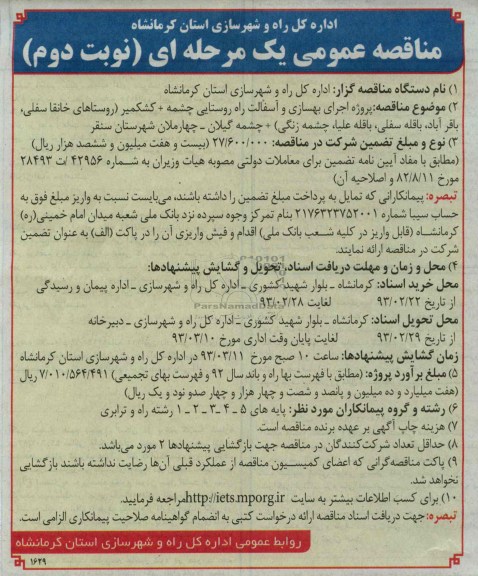 اداره کل راه و شهرسازی استان کرمانشاه
مناقصه عمومی یک مرحله ای (نوبت دوم)
۱) نام دستگاه مناقصه گزار: اداره کل راه و شهرسازی استان کرمانشاه
۲) موضوع مناقصه:پروژه اجرای بهسازی و آسفالت راه روستایی چشمه + کشکمیر (روستاهای خانقا سفلی،
باقر آباد، باقله سفلی، باقله علیا، چشمه زنگی) + چشمه گیلان ـ چهارملان شهرستان سنقر
۳) نوع و مبلغ تضمین شرکت در مناقصه: ۲۷/۶۰۰/۰۰۰ (بیست و هفت میلیون و ششصد هزار ریال)
(مطابق با مفاد آیین نامه تضمین برای معاملات دولتی مصوبه هیات وزیران به شماره ۴۲۹۵۶ /ت ۲۸۴۹۳
مورخ ۸۲/۸/۱۱ و اصلاحیه آن)
تبصره: پیمانکارانی که تمایل به پرداخت مبلغ تضمین را داشته باشند، می‌بایست نسبت به واریز مبلغ فوق به
حساب سیبا شماره ۲۱۷۶۳۲۳۷۵۲۰۰۱ بنام تمرکز وجوه سپرده نزد بانک ملی شعبه میدان امام خمینی(ره)
کرمانشاه (قابل واریز در کلیه شعب بانک ملی) اقدام و فیش واریزی آن را در پاکت (الف) به عنوان تضمین
شرکت در مناقصه ارائه نمایند.
۴) محل و زمان و مهلت دریافت اسناد، تحویل و گشایش پیشنهادها:
محل خرید اسناد: کرمانشاه ـ بلوار شهید کشوری ـ اداره کل راه و شهرسازی ـ اداره پیمان و رسیدگی
از تاریخ ۹۳/۰۲/۲۲ لغایت ۹۳/۰۲/۲۸
محل تحویل اسناد: کرمانشاه ـ بلوار شهید کشوری ـ اداره کل راه و شهرسازی ـ دبیرخانه
از تاریخ ۹۳/۰۲/۲۹ لغایت پایان وقت اداری مورخ ۹۳/۰۳/۱۰
زمان گشایش پیشنهادها: ساعت ۱۰ صبح مورخ ۹۳/۰۳/۱۱ در اداره کل راه و شهرسازی استان کرمانشاه
۵) مبلغ برآورد پروژه: (مطابق با فهرست بها راه و باند سال ۹۲ و فهرست بهای تجمیعی) ۷/۰۱۰/۵۶۴/۴۹۱ ریال
(هفت میلیارد و ده میلیون و پانصد و شصت و چهار هزار و چهار صدو نود و یک ریال)
۶) رشته و گروه پیمانکاران مورد نظر: پایه های ۵ ـ ۴ ـ ۳ ـ ۲ ـ ۱ رشته راه و ترابری
۷) هزینه چاپ آگهی بر عهده برنده مناقصه است.
۸) حداقل تعداد شرکت‌کنندگان در مناقصه جهت بازگشایی پیشنهادها ۲ مورد می‌باشد.
۹) پاکت مناقصه‌گرانی که اعضای کمیسیون مناقصه از عملکرد قبلی آن‌ها رضایت نداشته باشند بازگشایی
نخواهد شد.
۱۰) برای کسب اطلاعات بیشتر به سایت http://iets.mporg.ir مراجعه فرمایید.
تبصره: جهت دریافت اسناد مناقصه ارائه درخواست کتبی به انضمام گواهینامه صلاحیت پیمانکاری الزامی است.
روابط عمومی اداره کل راه و شهرسازی استان کرمانشاه
۱۶۲۹